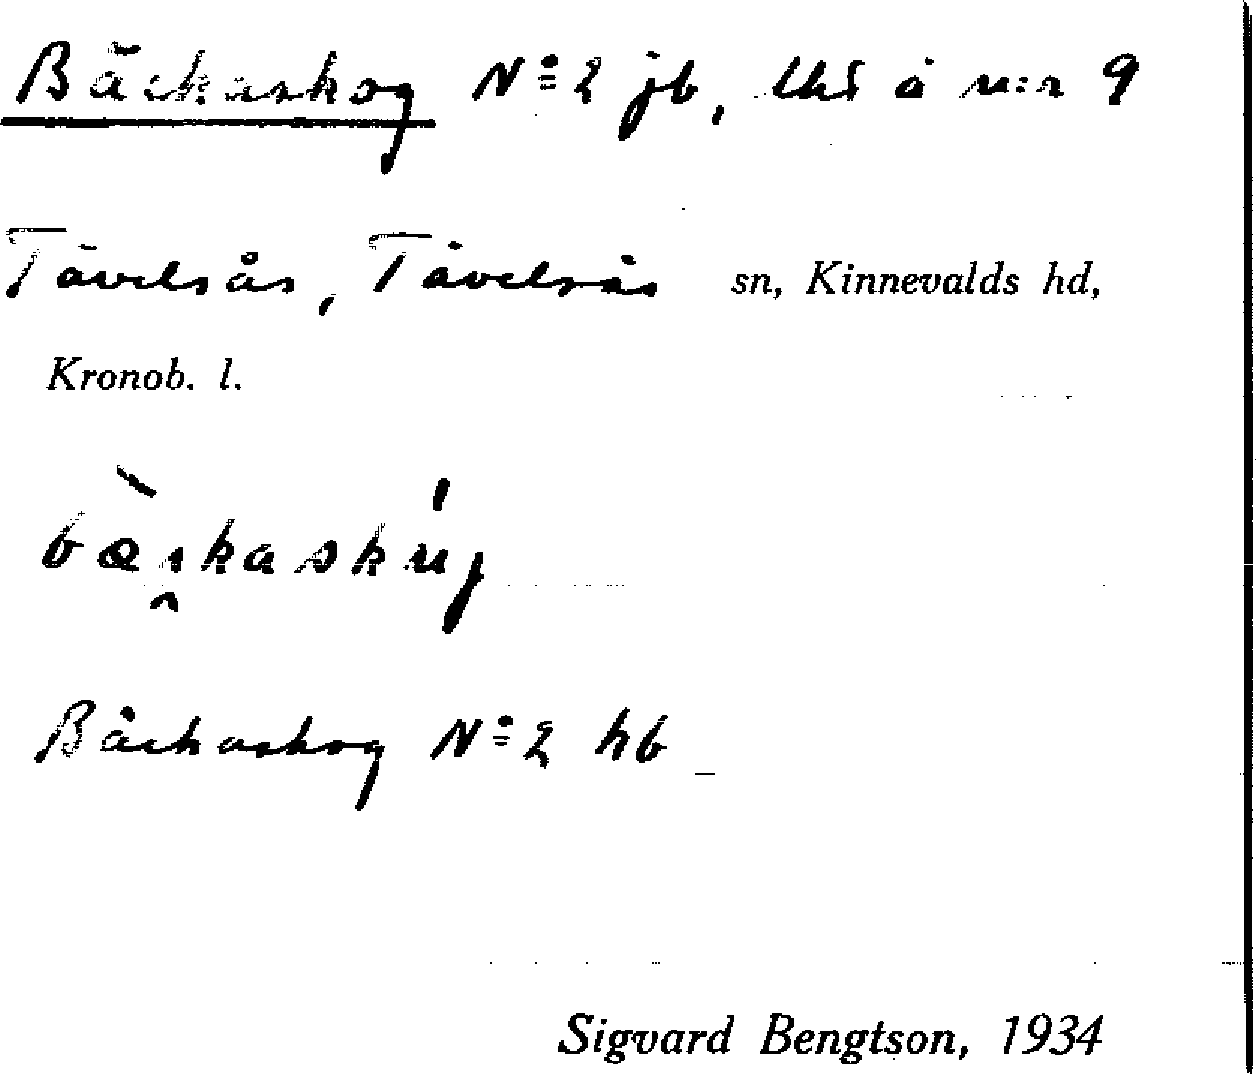 Bäckaskog No 2 jb, lhs å n:r 9
Tävelsås, Tävelsås sn, Kinnevalds hd,
Kronob. l.
Bäckaskog No 2 hb
Sigvard Bengtson, 1934